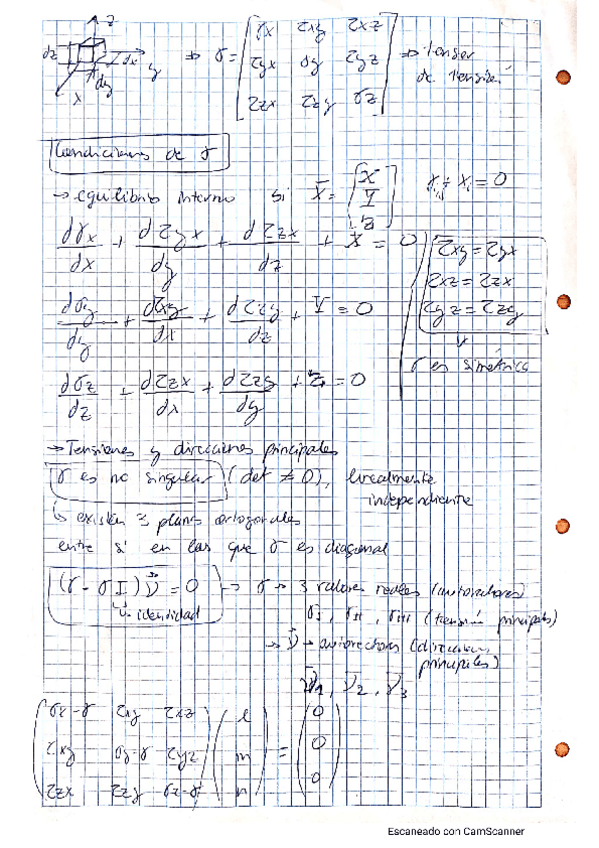 z
dz
dx
y
dy
x
⇒ σ = [ σx τxy τxz
τyx σy τyz
τzx τzy σz ] ⇒ tensor
de tensión
Condiciones de σ
→ equilibrio interno si X̄ = [ X
Y
Z ]
dσx/dx + dτyx/dy + dτzx/dz + X = 0
τxy = τyx
τxz = τzx
τyz = τzy
σ es simétrica
dσy/dy + dτxy/dx + dτzy/dz + Y = 0
dσz/dz + dτzx/dx + dτzy/dy + Z = 0
→ Tensiones y direcciones principales
σ es no singular (det ≠ 0), linealmente
independiente
↳ existen 3 planos ortogonales
entre sí en las que σ es diagonal
(σ - σ I) ν⃗ = 0 → σ → 3 valores reales (autovalores)
↳ identidad
σI, σII, σIII (tensión principales)
→ ν̄ → autovectores (direcciones
principales)
ν̄1, ν̄2, ν̄3
( σx-σ τxy τxz ) ( l ) = ( 0 )
( τxy σy-σ τyz ) ( m ) = ( 0 )
( τzx τzy σz-σ ) ( n ) = ( 0 )
Escaneado con CamScanner